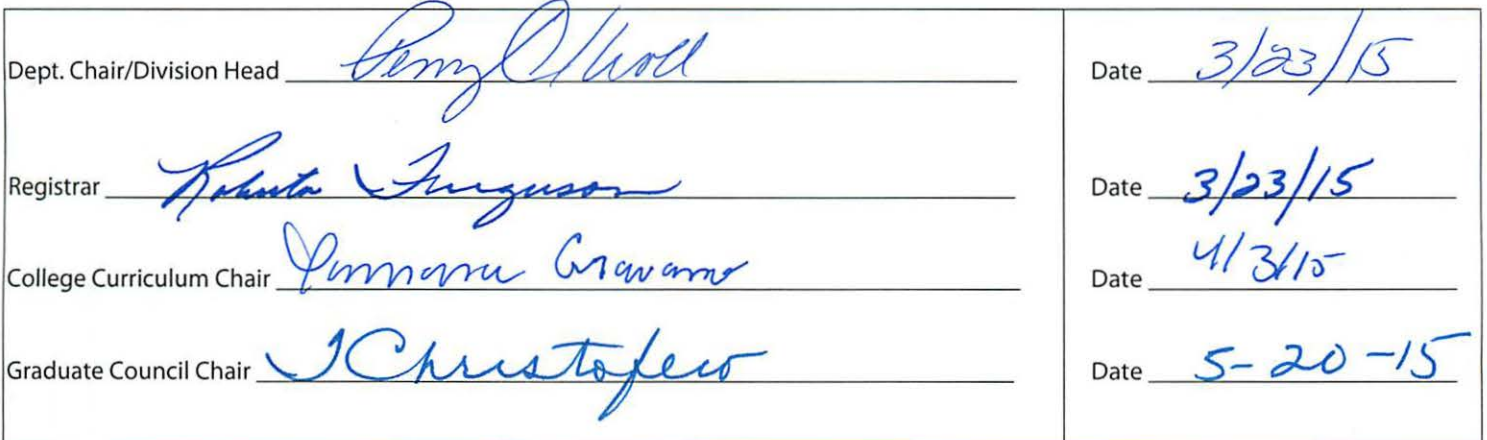 Dept. Chair/Division Head Date 3/23/15
Registrar Roberta Ferguson Date 3/23/15
College Curriculum Chair Date 4/3/15
Graduate Council Chair Date 5-20-15